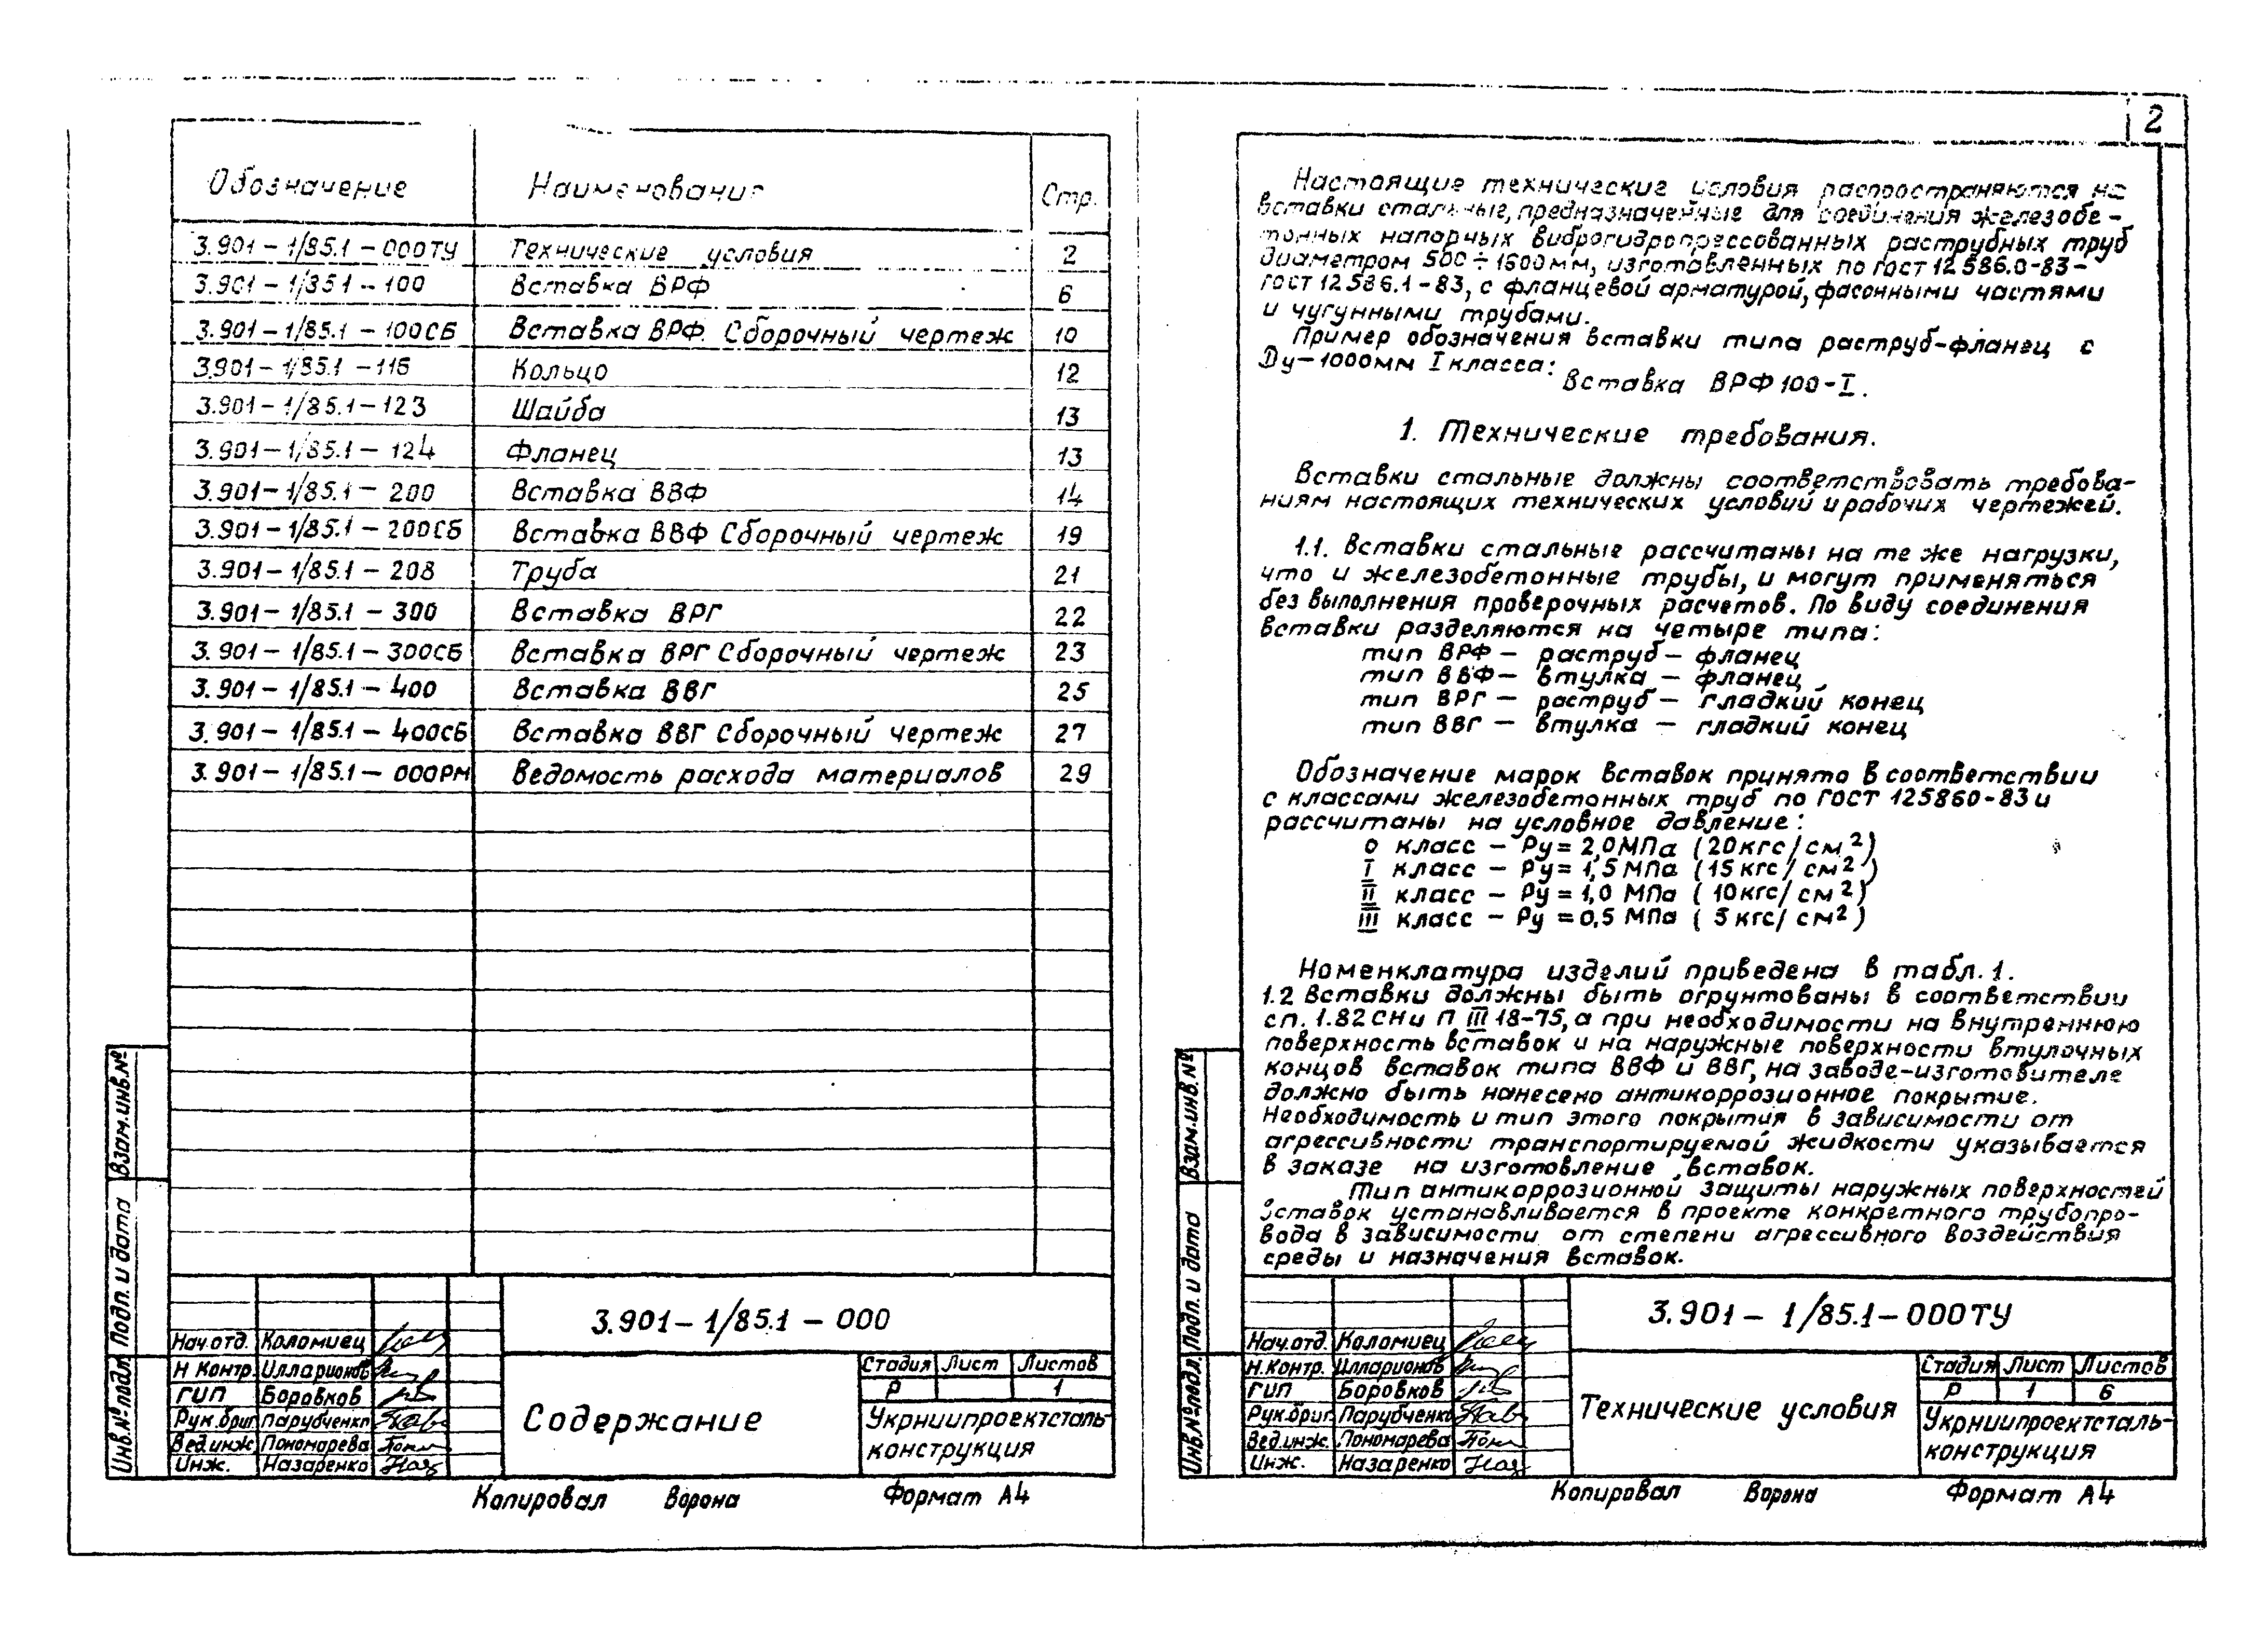 Обозначение Наименование Стр.
3.901-1/85.1-000ТУ Технические условия 2
3.901-1/85.1-100 Вставка ВРФ 6
3.901-1/85.1-100СБ Вставка ВРФ. Сборочный чертеж 10
3.901-1/85.1-116 Кольцо 12
3.901-1/85.1-123 Шайба 13
3.901-1/85.1-124 Фланец 13
3.901-1/85.1-200 Вставка ВВФ 14
3.901-1/85.1-200СБ Вставка ВВФ Сборочный чертеж 19
3.901-1/85.1-208 Труба 21
3.901-1/85.1-300 Вставка ВРГ 22
3.901-1/85.1-300СБ Вставка ВРГ Сборочный чертеж 23
3.901-1/85.1-400 Вставка ВВГ 25
3.901-1/85.1-400СБ Вставка ВВГ Сборочный чертеж 27
3.901-1/85.1-000РМ Ведомость расхода материалов 29
Взам.инв.№
Подп. и дата
Инв.№подл.
3.901-1/85.1-000
Нач.отд. Коломиец
Н.контр. Илларионов
ГИП Боровков
Рук.бриг. Парубченко
Вед.инж. Пономарева
Инж. Назаренко
Содержание
Стадия Лист Листов
Р 1
Укрниипроектсталь-
конструкция
Копировал Ворона Формат А4
2
Настоящие технические условия распространяются на
вставки стальные, предназначенные для соединения железобе-
тонных напорных виброгидропрессованных раструбных труб
диаметром 500÷1600мм, изготовленных по ГОСТ 12586.0-83-
ГОСТ 12586.1-83, с фланцевой арматурой, фасонными частями
и чугунными трубами.
Пример обозначения вставки типа раструб-фланец с
Ду-1000мм I класса:
Вставка ВРФ 100-I.
1. Технические требования.
Вставки стальные должны соответствовать требова-
ниям настоящих технических условий и рабочих чертежей.
1.1. Вставки стальные рассчитаны на те же нагрузки,
что и железобетонные трубы, и могут применяться
без выполнения проверочных расчетов. По виду соединения
вставки разделяются на четыре типа:
тип ВРФ - раструб - фланец
тип ВВФ - втулка - фланец,
тип ВРГ - раструб - гладкий конец
тип ВВГ - втулка - гладкий конец
Обозначение марок вставок принято в соответствии
с классами железобетонных труб по ГОСТ 125860-83 и
рассчитаны на условное давление:
0 класс - Ру= 2,0МПа (20кгс/см²)
I класс - Ру= 1,5 МПа (15 кгс/см²)
II класс - Ру=1,0 МПа (10кгс/см²)
III класс - Ру=0,5 МПа (5кгс/см²)
Номенклатура изделий приведена в табл.1.
1.2 Вставки должны быть огрунтованы в соответствии
с п. 1.82 СНиП III 18-75, а при необходимости на внутреннюю
поверхность вставок и на наружные поверхности втулочных
концов вставок типа ВВФ и ВВГ, на заводе-изготовителе
должно быть нанесено антикоррозионное покрытие.
Необходимость и тип этого покрытия в зависимости от
агрессивности транспортируемой жидкости указывается
в заказе на изготовление вставок.
Тип антикоррозионной защиты наружных поверхностей
вставок устанавливается в проекте конкретного трубопро-
вода в зависимости от степени агрессивного воздействия
среды и назначения вставок.
Взам.инв.№
Подп. и дата
Инв.№подл.
3.901-1/85.1-000ТУ
Нач.отд. Коломиец
Н.контр. Илларионов
ГИП Боровков
Рук.бриг. Парубченко
Вед.инж. Пономарева
Инж. Назаренко
Технические условия
Стадия Лист Листов
Р 1 6
Укрниипроектсталь-
конструкция
Копировал Ворона Формат А4